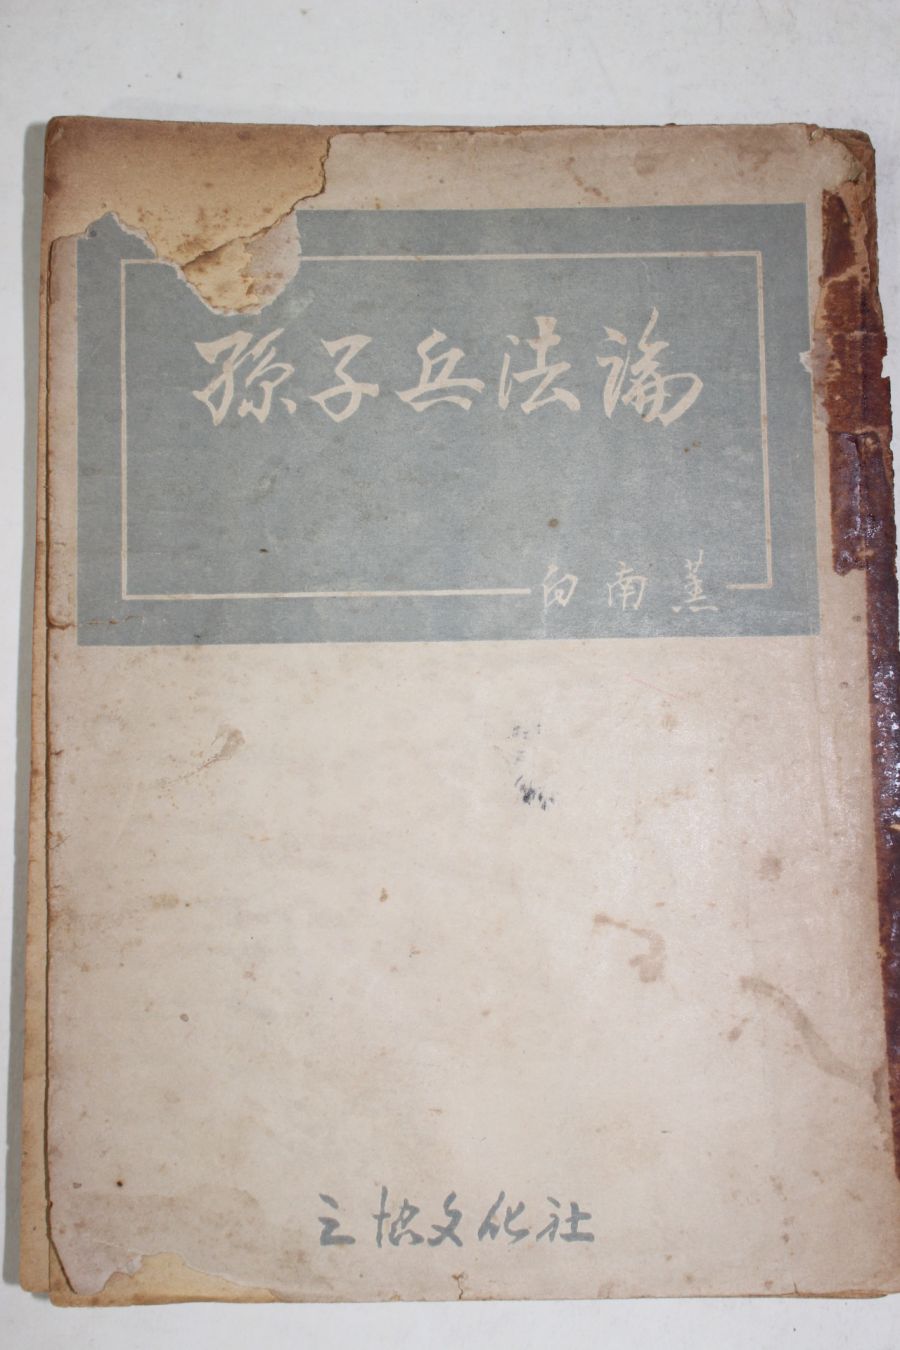 孫子兵法論
白南薰
三協文化社